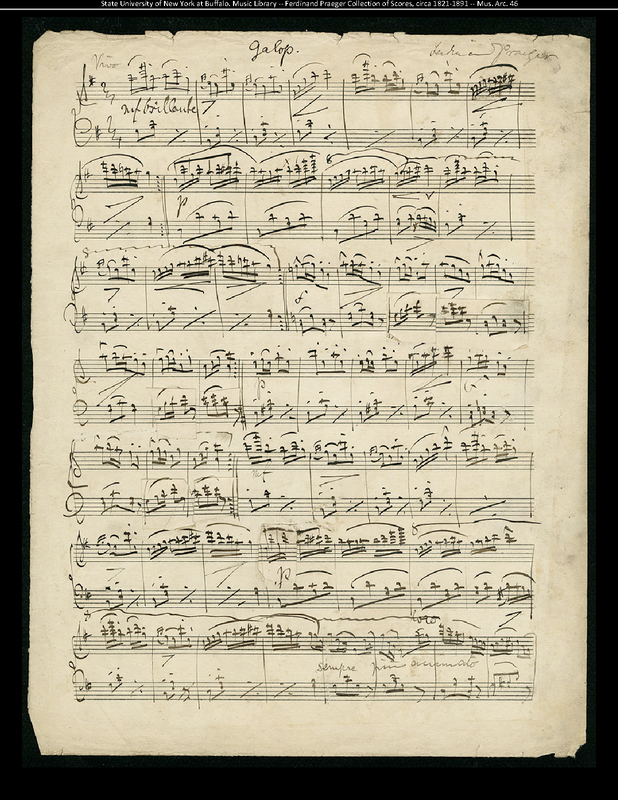 State University of New York at Buffalo. Music Library -- Ferdinand Praeger Collection of Scores, circa 1821-1891 -- Mus. Arc. 46
Galop.
Ferdinand Praeger
Vivo
brillante
p
8
f
p
p
8
loco
sempre più animato